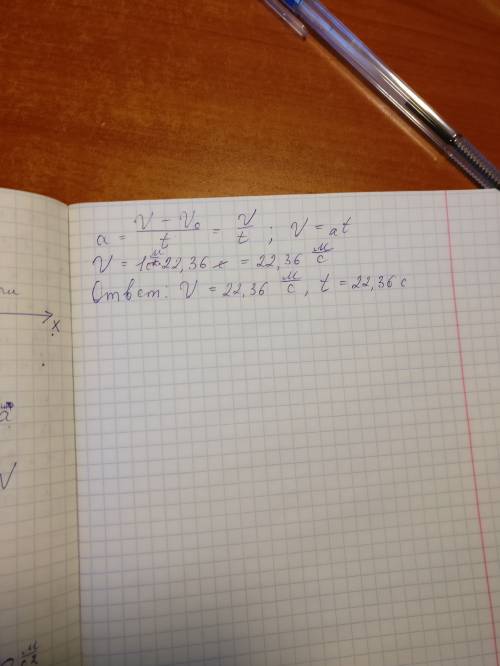 a = (V - V₀)/t = V/t ; V = at
V = 1 м/с² · 22,36 с = 22,36 м/с
Ответ: V = 22,36 м/с, t = 22,36 с
x
a
V
м/с²